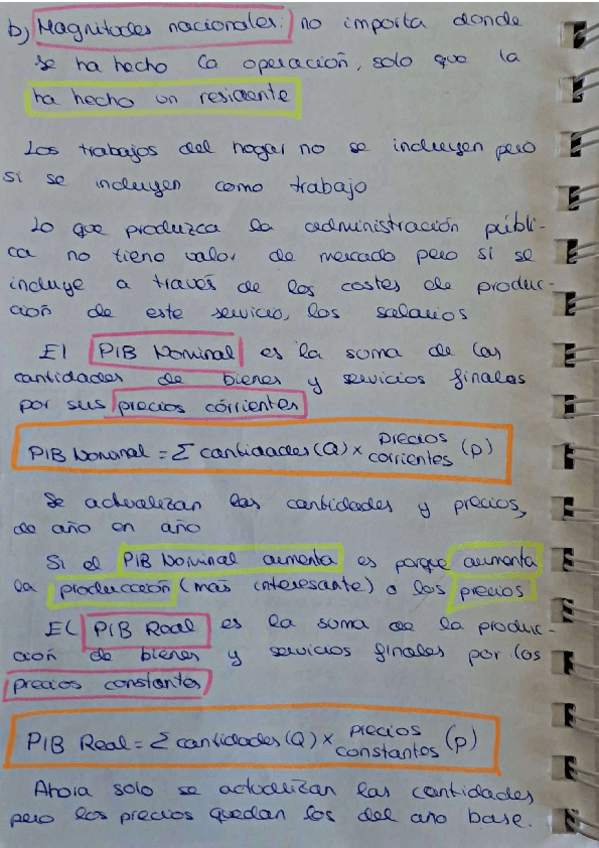 b) Magnitudes nacionales: no importa donde
se ha hecho la operación, solo que la
ha hecho un residente
Los trabajos del hogar no se incluyen pero
si se incluyen como trabajo
Lo que produzca la administración públi-
ca no tiene valor de mercado pero si se
incluye a través de los costes de produc-
ción de este servicio, los salarios
El PIB Nominal es la suma de las
cantidades de bienes y servicios finales
por sus precios corrientes
PIB Nominal = Σ cantidades (Q) × precios corrientes (p)
Se actualizan las cantidades y precios,
de año en año
Si el PIB Nominal aumenta es porque aumenta
la producción (más interesante) o los precios
El PIB Real es la suma de la produc-
ción de bienes y servicios finales por los
precios constantes
PIB Real = Σ cantidades (Q) × precios constantes (p)
Ahora solo se actualizan las cantidades
pero los precios quedan los del año base.